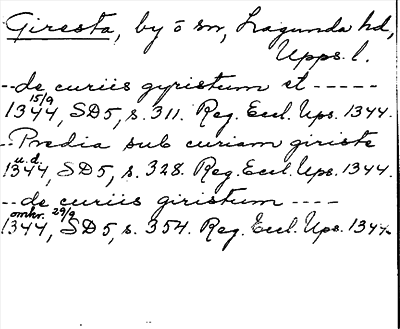 Giresta, by ö sn, Lagunda hd,
Upps. l.
--de curiis gyristum et -----
15/9
1344, SD5, s. 311. Reg. Eccl. Ups. 1344.
--Predia sub curiam giriste
u. d.
1344, SD5, s. 328. Reg. Eccl. Ups. 1344.
--de curiis giristum ----
omkr. 29/9
1344, SD5, s. 354. Reg. Eccl. Ups. 1344.